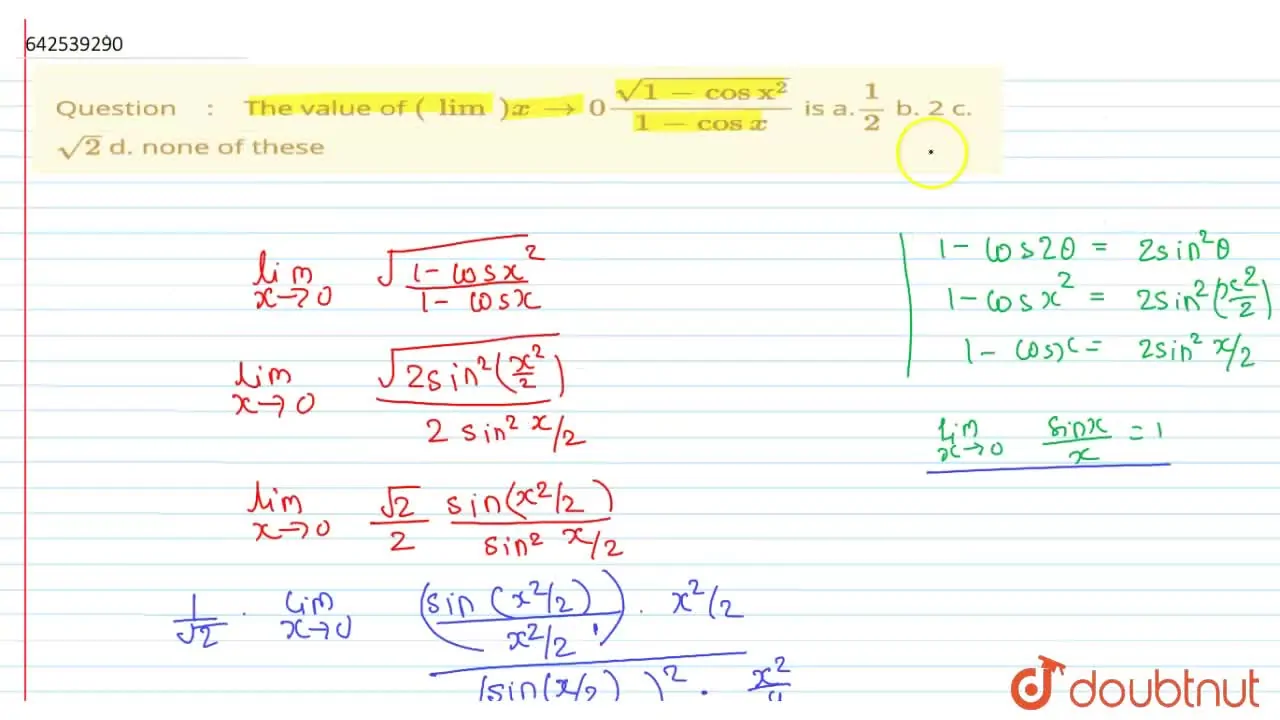 642539290
Question : The value of ( lim ) x → 0 √(1 − cos x²) / (1 − cos x) is a. 1/2 b. 2 c.
√2 d. none of these
lim x→0 √(1-cosx²) / (1-cosx)
lim x→0 √(2sin²(x²/2)) / (2 sin² x/2)
lim x→0 √2/2 sin(x²/2) / (sin² x/2)
1/√2 . lim x→0 (sin(x²/2) / (x²/2)) . x²/2
(sin(x/2) )² . x²/4
1-cos2θ = 2sin²θ
1-cosx² = 2sin²(x²/2)
1-cosx = 2sin² x/2
lim x→0 sinx/x = 1
doubtnut